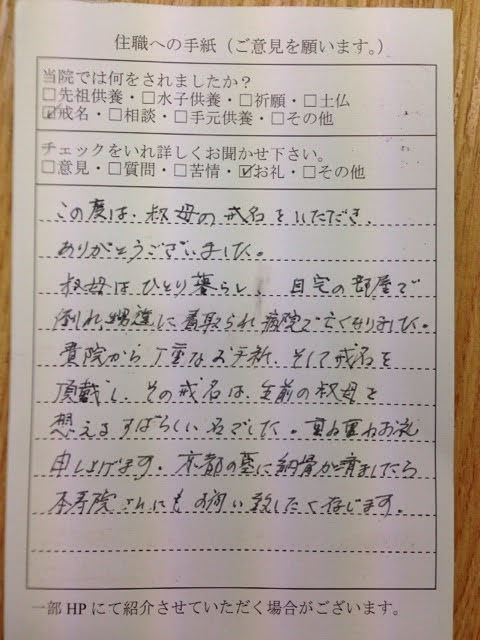 住職への手紙（ご意見を願います。）
当院では何をされましたか？
□先祖供養・□水子供養・□祈願・□土仏
☑戒名・□相談・□手元供養・□その他
チェックをいれ詳しくお聞かせ下さい。
□意見・□質問・□苦情・☑お礼・□その他
この度は、叔母の戒名をいただき、
ありがとうございました。
叔母はひとり暮らし、自宅の部屋で
倒れ、甥達に看取られ病院で亡くなりました。
貴院から丁重なお手紙、そして戒名を
頂戴し、その戒名は、生前の叔母を
想えるすばらしい名でした。重ね重ねお礼
申し上げます。京都の墓に納骨が済ましたら
本寿院さんにもお伺い致したく存じます。
一部HPにて紹介させていただく場合がございます。